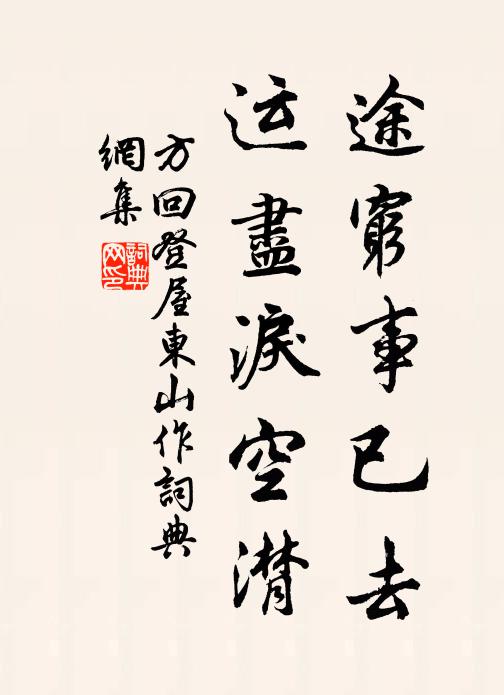 途窮事已去
运盡淚空潸
方回登屋東山作詞典
網集
詞典
网印